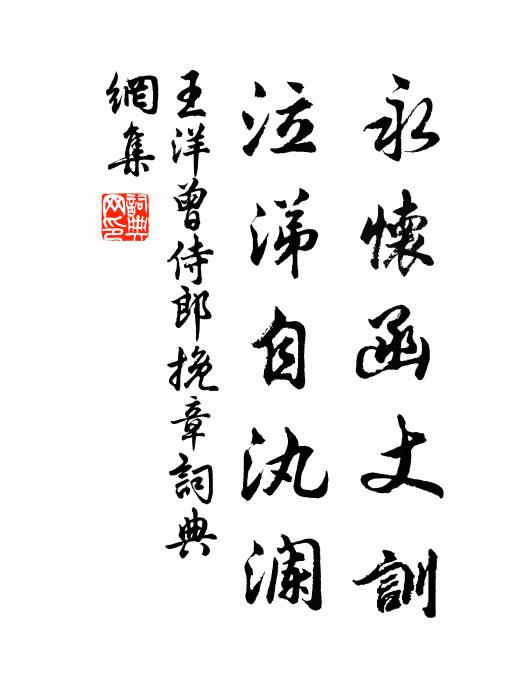 永懷函丈訓
泣涕自汍瀾
王洋曾侍郎挽章詞典
網集
詞典網印